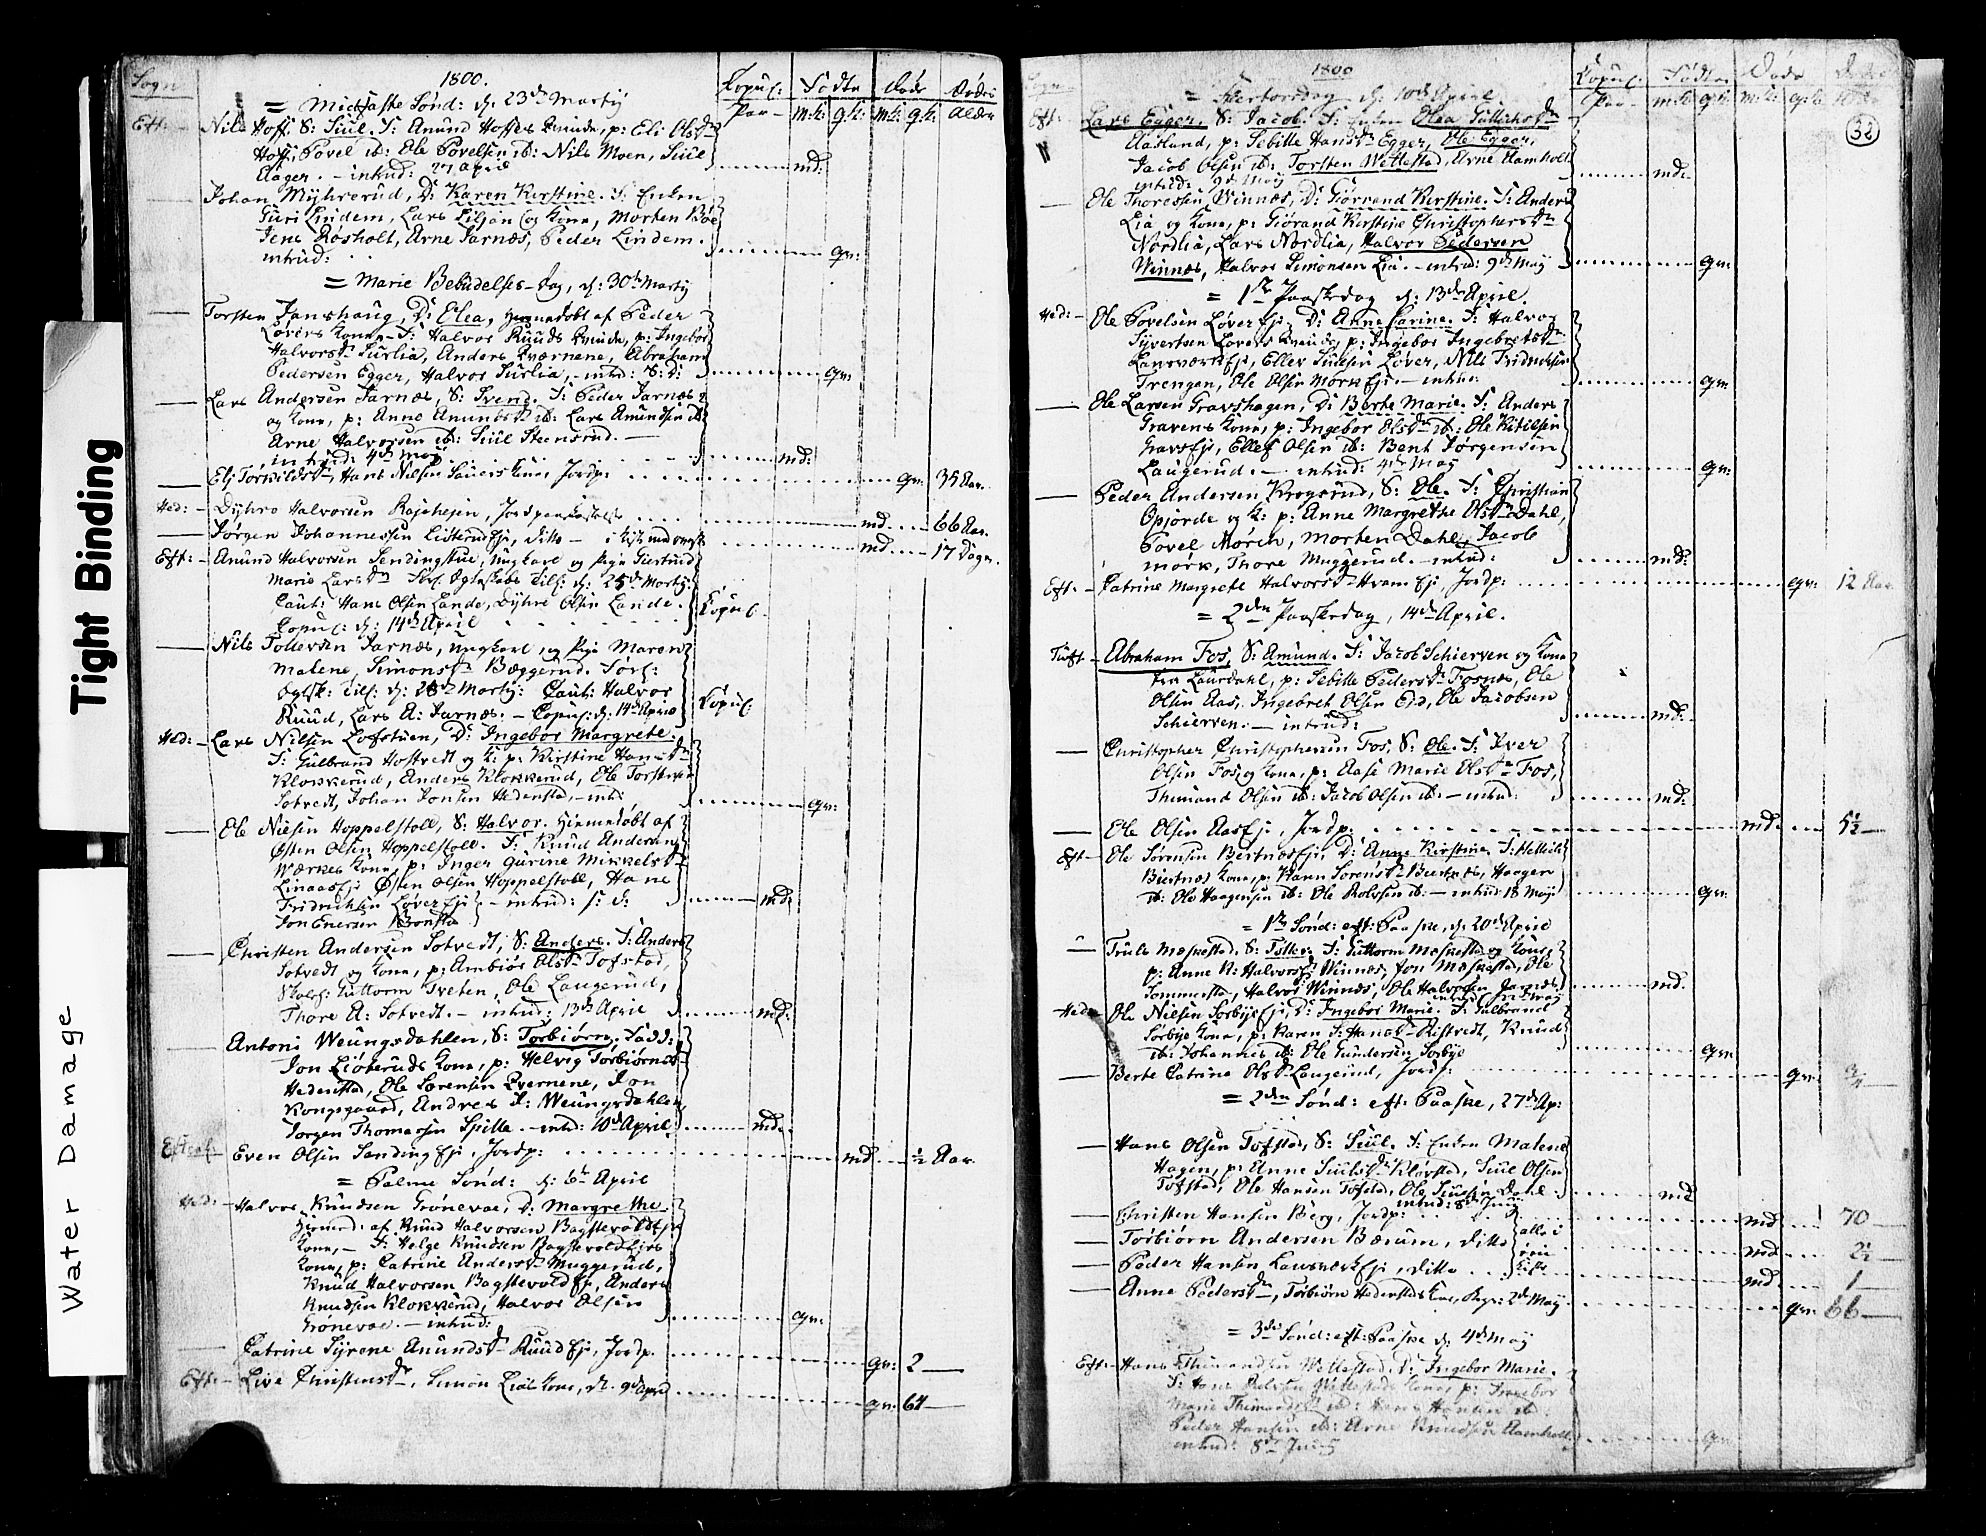 Tight Binding
Water Damage
Sogn
1800.
Copul:
Par
Födte
m:k: q:k:
Döde
m:k: q:k:
Dödes
Alder
= Midfaste Sönd: d: 23de Marty
Eft: - Nils Hoff, S: Siul. F: Anund Hoffes Qvinde, p: Eli Olsdr
Hoff, Povel ib: Ole Povelsen ib: Nils Moen, Siul
Aager. - introd: 27 April md:
Johan Myhrerud, D: Karen Kirstine. F: Enken
Guri Lindem, Lars Liljan og Kona, Morten Böe
Jens Rösholt, Arne Jarnæs, Peder Lindem.
introd: qv:
= Marie Bebudelses-Dag, d: 30te Marty
Torsten Janshaug, D: Elea, hjemmedöbt af Peder
Lövers Kone - F: Halvor Ruuds Qvinde, p: Ingebor
Halvorsdr Surlia, Anders Qværnene, Abraham
Pedersen Egger, Halvor Surlia, - introd: S: D: qv:
Lars Andersen Jarnæs, S: Svend. F: Peder Jarnæs
og Kona, p: Anne Amundsdr ib: Lars Amundsen ib:
Arne Halvorsen ib: Siul Steensrud. -
introd: 4de May md:
Elj Torkildsdr, Hans Nilsen Sauers Kone, Jordp: qv: 35 Aar.
Hed: - Dyhre Halvorsen md 66 Aar
Jörgen Johannessen ditto - md 17 Dage.
Eft: - Anund Halvorsen Sendingstue, ungkarl og Pige Giertrud
Marie Larsdr d: 25de Marty:
Caut: Hans Olsen Lande, Dyhre Olsen Lande.
Copul: d: 14de April Copul:
Nils Tollevsen Jarnæs, ungkarl og Pige Maren
Malene Simonsdr Bæggerud.
d: 28de Marty: Caut: Halvor
Ruud, Lars A: Jarnæs. - Copul: d: 14de April Copul:
Hed: - Lars Nilsen Lofstuen, D: Ingebor Margrete.
F: Gulbrand Hostvedt og K: p: Kirstine Hansdr
Klokkerud, Anders Klokkerud, Ole Torstensen
Sotvedt, Johan Jonsen Hedenstad, - introd: qv:
Ole Nielsen Hoppelstoll, S: Halvor. Hjemmedöbt af
Östen Olsen Hoppelstoll. F: Knud Andersen
Værkes Kone, p: Inger Gurine Mikkelsdr
Östen Olsen Hoppelstoll, Hans
Fridrichsen Löver Ej: - introd: md:
Jon Enersen
Christen Andersen Sotvedt, S: Anders. F: Anders
Sotvedt og Kona, p: Ambiör Olsdr Tofstad,
Guttorm Tveten, Ole Laugerud,
Thore A: Sotvedt. - introd: 13de April md:
Antoni Weungsdahlen, S: Torbiörn. Fadd:
Jon Lioteruds Kona, p: Helvig Torbiörnsdr
Hedenstad, Ole Sorensen Qvernene, Jon
Kongsgaard, Andres J: Weungsdahlen,
Jorgen Thomassen Spitte. - introd: 10de April: md:
Even Olsen Sanding Ej: Jordp: md ½ Aar
= Palme Sönd: d: 6te April
Hed: - Halvor Knudsen Grönevae, D: Margrethe.
Hjemmed: af Knud Halvorsen Bagstevold Ej:
Kona, - F: Helge Knudsen Bagstevold Ejes
Kona, p: Catrine Andersdr Muggerud,
Knud Halvorsen Bagstevold Ej: Anders
Knudsen Klokkerud, Halvor Olsen
Grönevae. - introd: qv:
Catrine Syrene Anundsdr Ruud Ej: Jordp. qv: 2
Eft: - Live Christensdr, Simon Lias Kona, d. 9de April qv: 64
1800
Copul:
Par
Födte
m:k: q:k:
Döde
m:k: q:k:
32
= Skertorsdag d: 10de April
Eft: - Lars Egger, S: Jacob. F: Enken Olea Gullichsdr
Aaslund, p: Sebille Hansdr Egger, Ole Egger,
Jacob Olsen ib: Torsten Wettestad, Arne Hamholt
introd: 9de May md:
Ole Thoresen Winnæs, D: Giörand Kirstine. F: Anders
Lia, og Kona, p: Giörand Kirstine Christophersdr
Nordlia, Lars Nordlia, Halvor Pedersen
Winnæs, Halvor Simonsen Lia. - introd: 9de May qv:
= 1ste Paaskedag d: 13de April.
Hed: - Ole Povelsen Löver Ej: D: Anne Carine. F: Halvor
Syvertsen Lovers Qvinde, p: Ingebor Ingebretsdr
Lansværk Ej: Ellev Siulsen Löver, Nils Fridrichsen
Trengen, Ole Olsen Mörk Ej: - introd: qv:
Ole Larsen Gravshagen, D: Berte Marie. F: Anders
Gravens Kona, p: Ingebor Olsdr ib: Ole Kittilsen
Gravs Ej: Ellef Olsen ib: Bent Jörgensen
Laugerud. - introd: 4de May qv:
Peder Andersen Krogsrud, S: Ole. F: Christian
Gpjorde og K: p: Anne Margrethe Olsdr Dahl,
Povel Mörch, Morten Dahl, Jacob
Mörk, Thore Muggerud. - introd: md:
Eft: - Catrine Margrete Halvorsdr Hvam Ej: Jordp: qv: 12 Aar
= 2den Paaskedag, 14de April.
Tuft - Abraham Fos, S: Amund. F: Jacob Schierven og Kona
fra Laurdahl, p: Sebille Pedersdr Fosnæs, Ole
Olsen Aas, Ingebret Olsen Eid, Ole Jacobsen
Schierven. - introd: md:
Christopher Christophersen Fos, S: Ole. F: Iver
Olsen Fos, og Kona, p: Aase Marie Olsdr Fos,
Thimand Olsen ib: Jacob Olsen ib: - introd: md:
Ole Olsen Aas Ej: Jordp: md. 5½
Eft - Ole Sörensen Bertnæs Ej: D: Anne Kirstine. F: Hellich
Biertnæs Kone, p: Karen Sorensdr Biertnæs, Haagen
ib: Ole Haagensen ib: Ole Rolvsen ib: - introd: 18 May qv:
= 1ste Sönd: eft: Paaske, d: 20de April
Truls Moskestad, S: Tollev. F: Guttorm Moskestad og Kone,
p: Anne N: Halvorsdr Winnæs, Jon Moskestad, Ole
Sommerstad, Halvor Winnæs, Ole Halvorsen Jarnæs. md.
Hed: - Ole Nilsen Sorbye Ej: D: Ingebor Marie. F: Gulbrand
Sorbye Kona, p: Karen Hansdr Ristvedt, Knud
ib: Johannes ib: Ole Gundersen Sorbye qv:
Berte Catrine Olsdr Laugerud, Jordp: qv: ¾
= 2den Sönd: eft: Paaske, 27de Ap:
Hans Olsen Tofstad, S: Siul. F: Enken Malene
Hagen, p: Anne Siulsdr Klovstad, Siul Olsen
Tofstad, Ole Hansen Tofstad, Ole Siulsen Dahl.
introd: 8de Juny md
Christen Hansen Berg, Jordp: md 70
Torbiörn Andersen Bærum, ditto md 2½
Peder Hansen Lansværk Ej: ditto md: 1
alle i
Anne Pedersdr, Torbiörn Hedenstads Kone, Begr: 2de May qv: 66
= 3de Sönd: eft: Paaske d: 4de May
Eft: - Hans Thimandsen Wettestad, D: Ingebor Marie.
F: Hans Wettestads Kone, p: Ingebor
Marie Thimandsdr ib: Hans Hansen ib:
Peder Hansen ib: Arne Knudsen Aamholt
introd: 8de Juny qv: